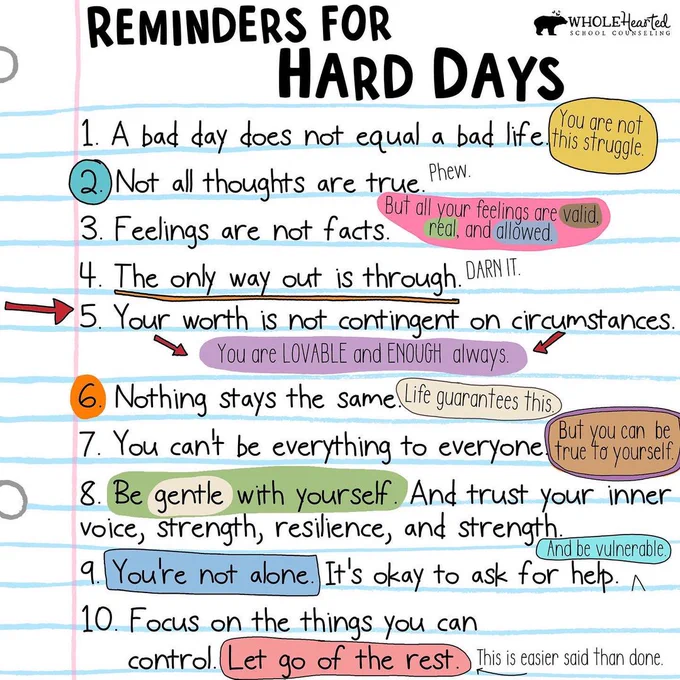 REMINDERS FOR
HARD DAYS
WHOLEHearted
SCHOOL COUNSELING
1. A bad day does not equal a bad life.
You are not
this struggle.
2. Not all thoughts are true.
Phew.
3. Feelings are not facts.
But all your feelings are valid,
real, and allowed.
4. The only way out is through.
DARN IT.
5. Your worth is not contingent on circumstances.
You are LOVABLE and ENOUGH always.
6. Nothing stays the same.
Life guarantees this.
7. You can't be everything to everyone.
But you can be
true to yourself.
8. Be gentle with yourself. And trust your inner
voice, strength, resilience, and strength.
And be vulnerable.
9. You're not alone. It's okay to ask for help.
10. Focus on the things you can
control. Let go of the rest.
This is easier said than done.